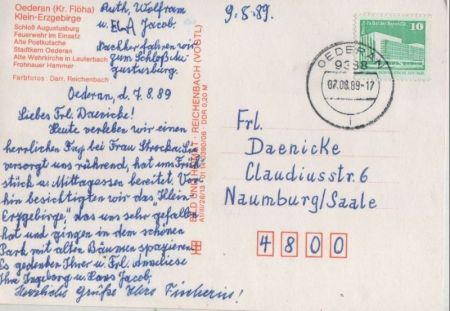 Oederan (Kr. Flöha)
Klein-Erzgebirge
Schloß Augustusburg
Feuerwehr im Einsatz
Alte Postkutsche
Stadtkern Oederan
Alte Wehrkirche in Lauterbach
Frohnauer Hammer
Farbfotos: Darr, Reichenbach
Ruth, Wolfram
u. Jacob.
Nachher fahren wir
zum Schloß Au-
gustusburg.
9.8.89.
Oederan, d. 7.8.89
Liebes Frl. Daenicke!
Heute verleben wir einen
herrlichen Tag bei Frau
versorgt uns rührend, hat uns Früh-
stück u. Mittagessen bereitet. Vor-
hin besichtigten wir das „Klein-
Erzgebirge", das uns sehr gefallen
hat und gingen in dem schönen
Park mit alten Bäumen spazieren.
Es gedenken Ihrer u. Frl. Anneliese
Ihre Ingeborg und Hans Jacob,
Herzliche Grüße Ihre Fischerin!
BILD UND HEIMAT REICHENBACH (VOGTL)
DDR 0,20 M
10
OEDERAN
9388
07.08.89-17
Frl.
Daenicke
Claudiusstr. 6
Naumburg/Saale
4800